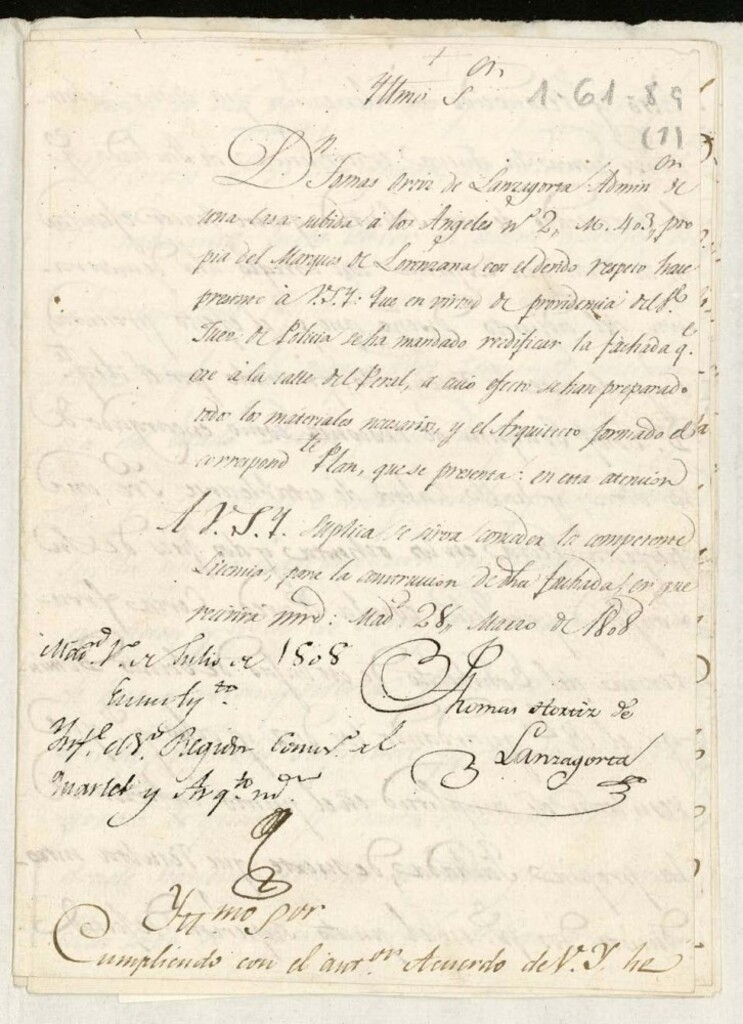 +
Yllmo Sor
1-61-89
(1)
Dn Tomas Ortiz de Lanzagorta Admin.on de
una casa subida á los Angeles nº 2, M. 403, pro
pia del Marques de Lorenzana con el devido respeto hace
presente á V.S.Y. que en virtud de providencia del Sr.
Juez de Policia se ha mandado redificar la fachada q.e
cae á la calle del Peral, á cuio efecto se han preparado
todos los materiales necesarios, y el Arquitecto formado el
correspond.te Plan, que se presenta: en esta atencion
A V.S.Y. Suplica se sirva conceder la competente
Licencia, para la construccion de dha fachada, en que
recivirá mrd: Mad.d 28, Marzo de 1808
Thomas Hortiz de
Lanzagorta
Mad.d 1.º de Julio de 1808
En su Ay.to
Ynf.e el Sr. Regidor Comis.º del
Quartel y Arq.to mr.
Yllmo Sor
Cumpliendo con el ant.or Acuerdo de V.Y. he